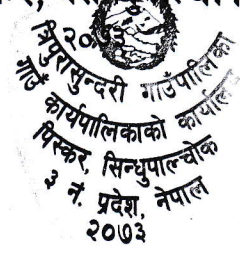 त्रिपुरासुन्दरी गाउँपालिका
गाउँ कार्यपालिकाको कार्यालय
पिस्कर, सिन्धुपाल्चोक
३ नं. प्रदेश, नेपाल
२०७३